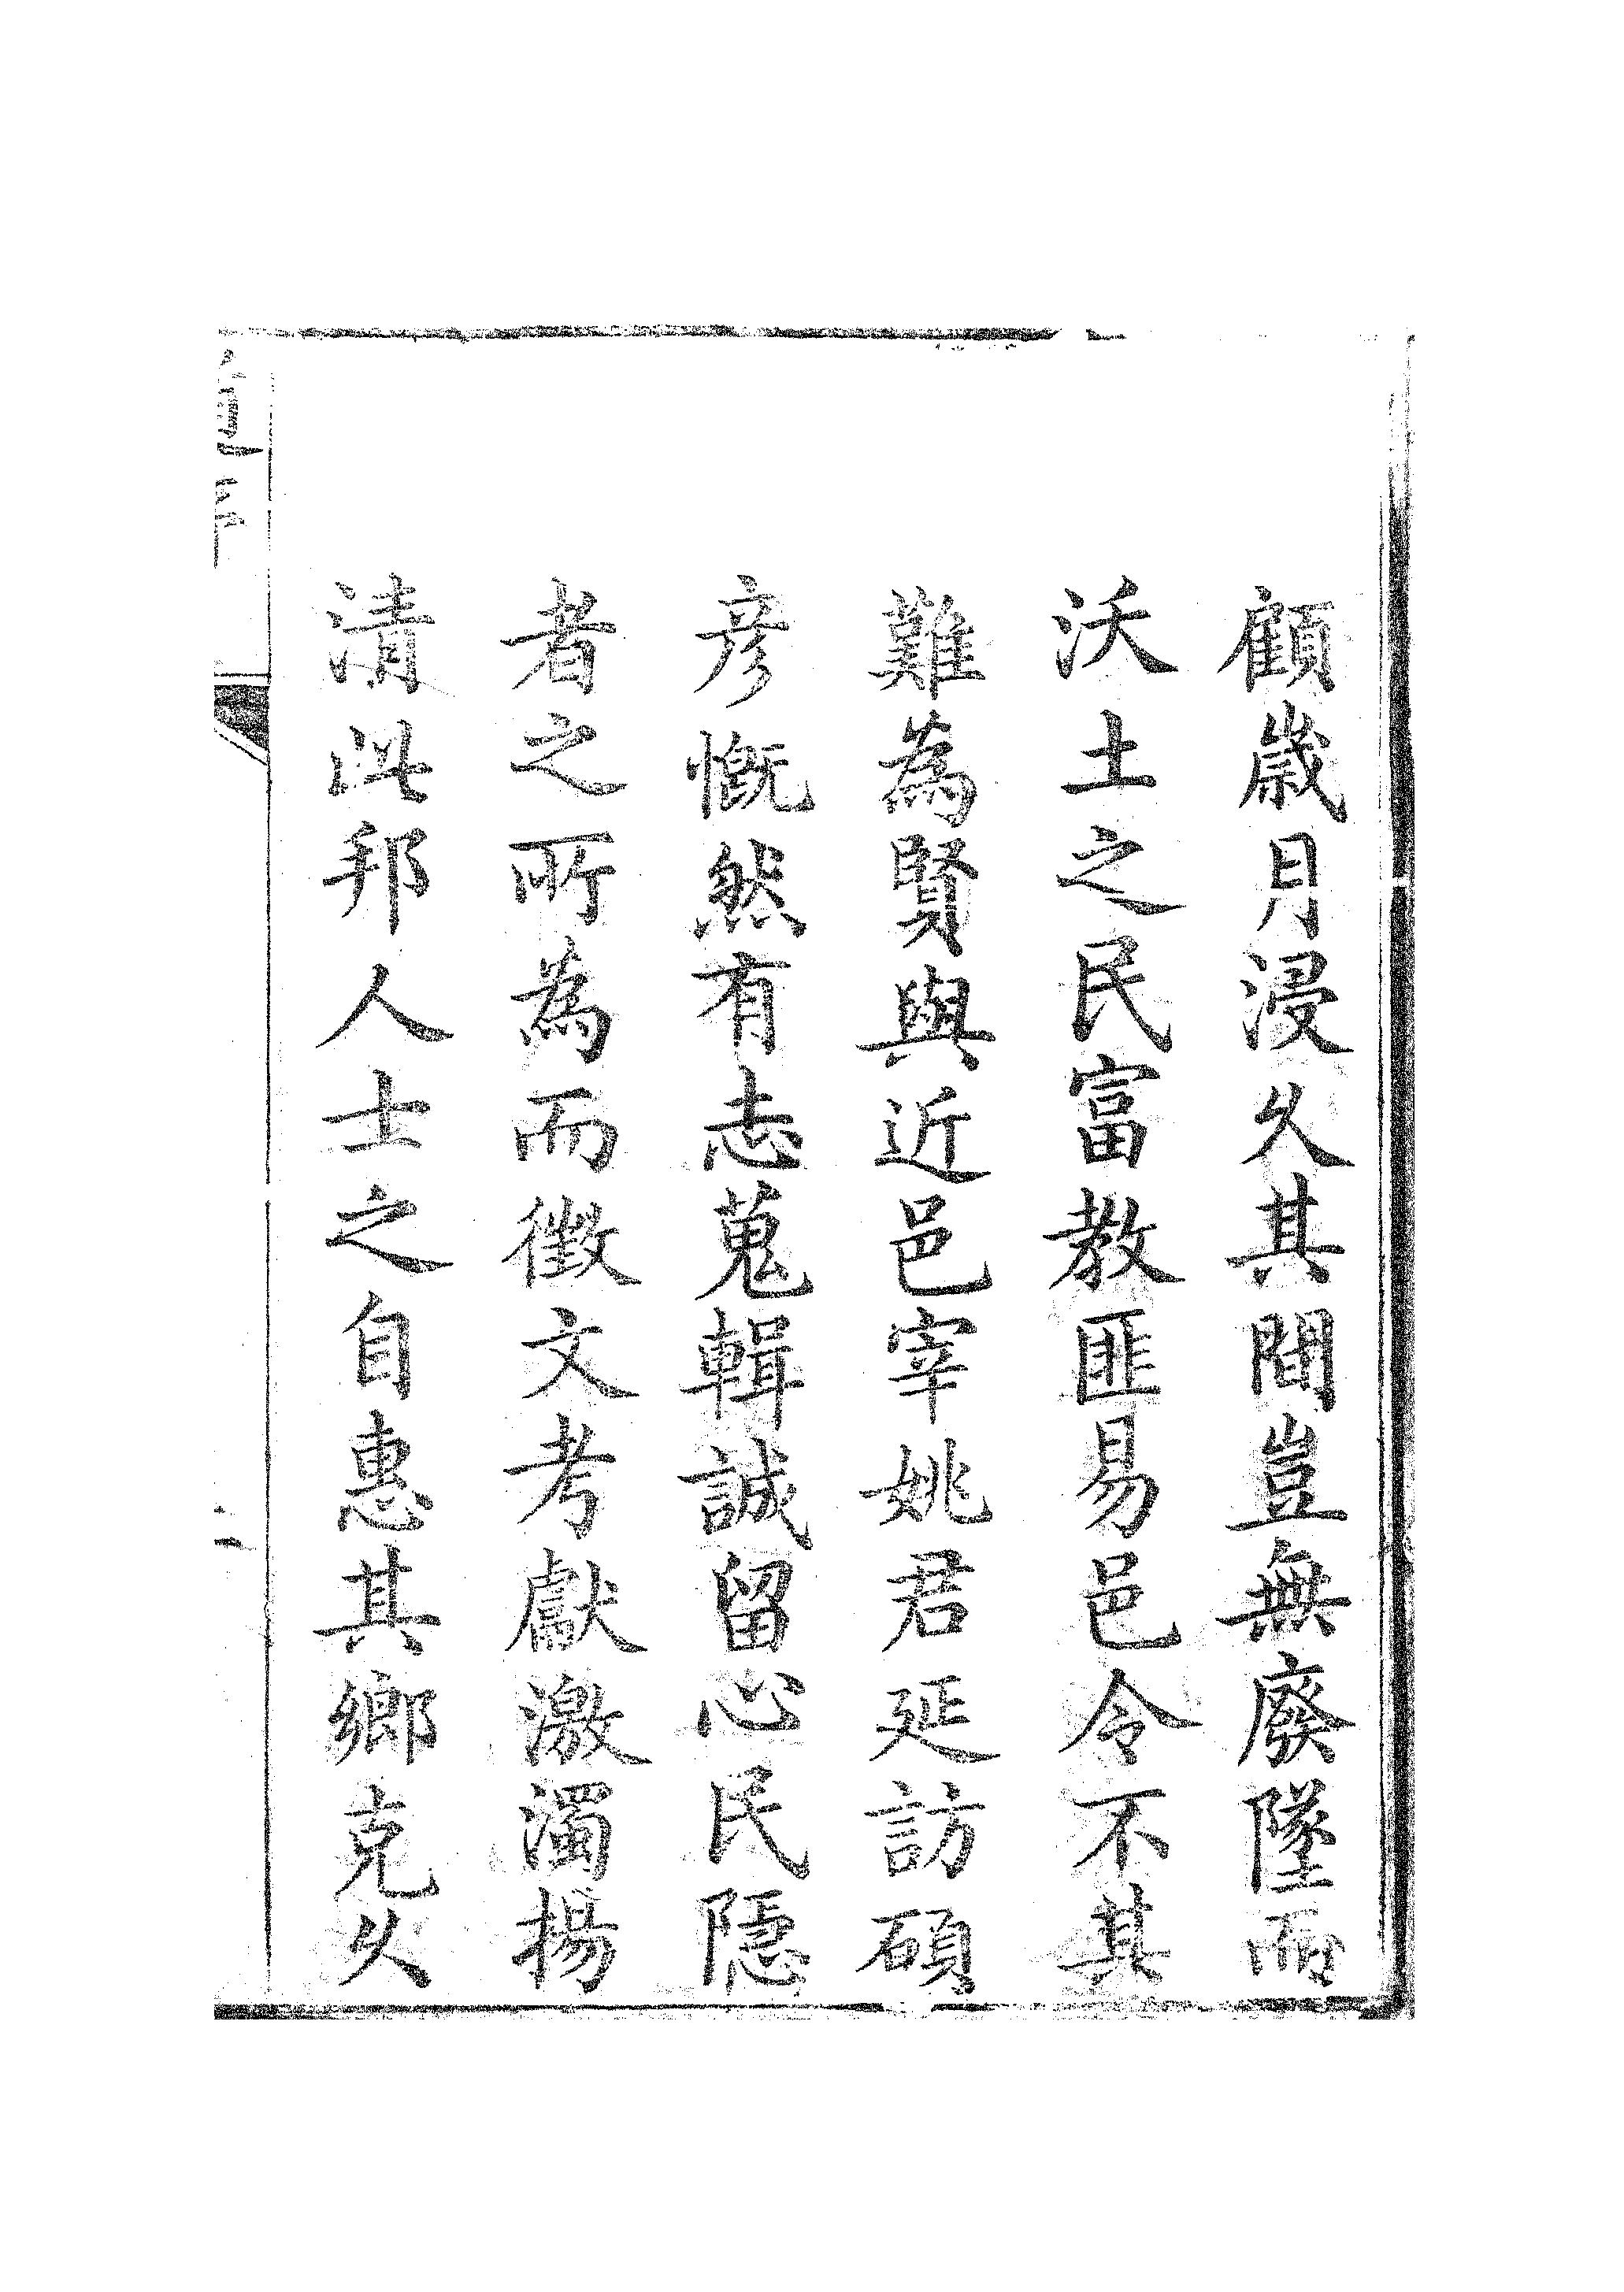 顧歲月浸久其間豈無廢墜而
沃土之民富教匪易邑令不其
難為賢與近邑宰姚君延訪碩
彦慨然有志蒐輯誠留心民隱
者之所為而徵文考獻激濁揚
清此邦人士之自惠其鄉克久